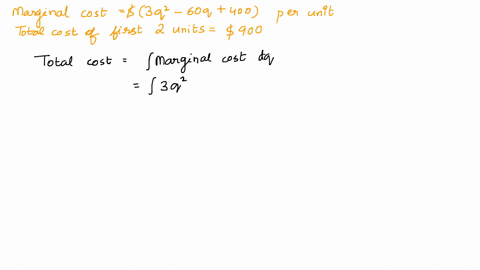 Marginal cost = $ (3q² - 60q + 400) per unit
Total cost of first 2 units = $ 900
Total cost = ∫ Marginal cost dq
= ∫ 3q²